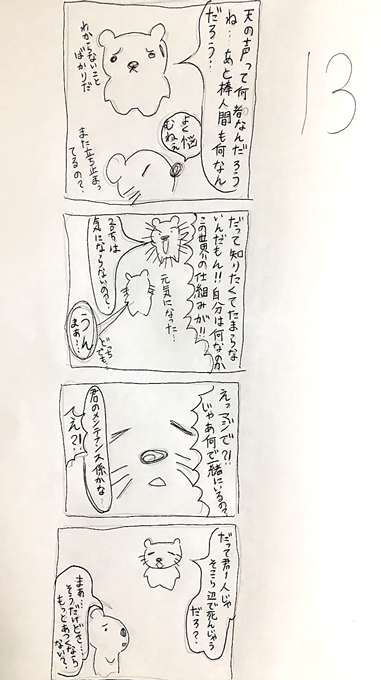 13
天の声って何者なんだろう
ね…あと棒人間も何なん
だろう…
わからないこと
ばかりだ
よく悩
むねぇ
また立ち止まっ
てるの?
だって知りたくてたまらな
いんだもん!!自分は何なのか
この世界の仕組みが!!
元気になった…
君は
気にならないの?
うん
まぁ…
どっち
でも
えっマジで?!
じゃあ何で一緒にいるの?
君のメンテナンス係かな
てえ?!
だって君1人じゃ
そこら辺で死んじゃう
だろ?
まぁ…
そうだけどさ…
もっとあつくなら
ない?